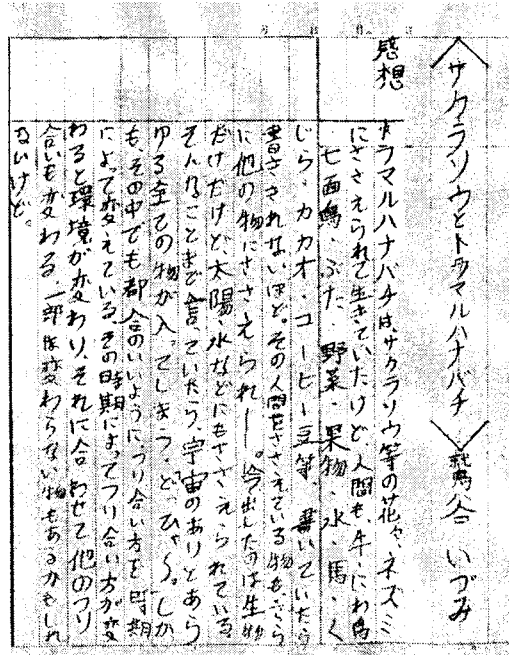 〈サクラソウとトラマルハナバチ〉
いづみ
感想
トラマルハナバチは、サクラソウ等の花々、ネズミ
にささえられて生きていたけど、人間も、牛・にわ鳥
・七面鳥・ぶた・野菜・果物・水・馬・く
じら・カカオ・コーヒー豆等、書いていたら
書ききれないほど。その人間をささえている物も、さら
に他の物にささえられー。今出したのは生物
だけだけど、太陽、水などにもささえられている
そんなことまで言っていたら、宇宙のありとあら
ゆる全ての物が入ってしまう、どっひゃ〜。しか
も、その中でも都合のいいように、つり合い方を時期
によって変えている。その時期によってつり合い方が変
わると環境が変わり、それに合わせて他のつり
合いも変わる。一部は変わらない物もあるかもしれ
ないけど。